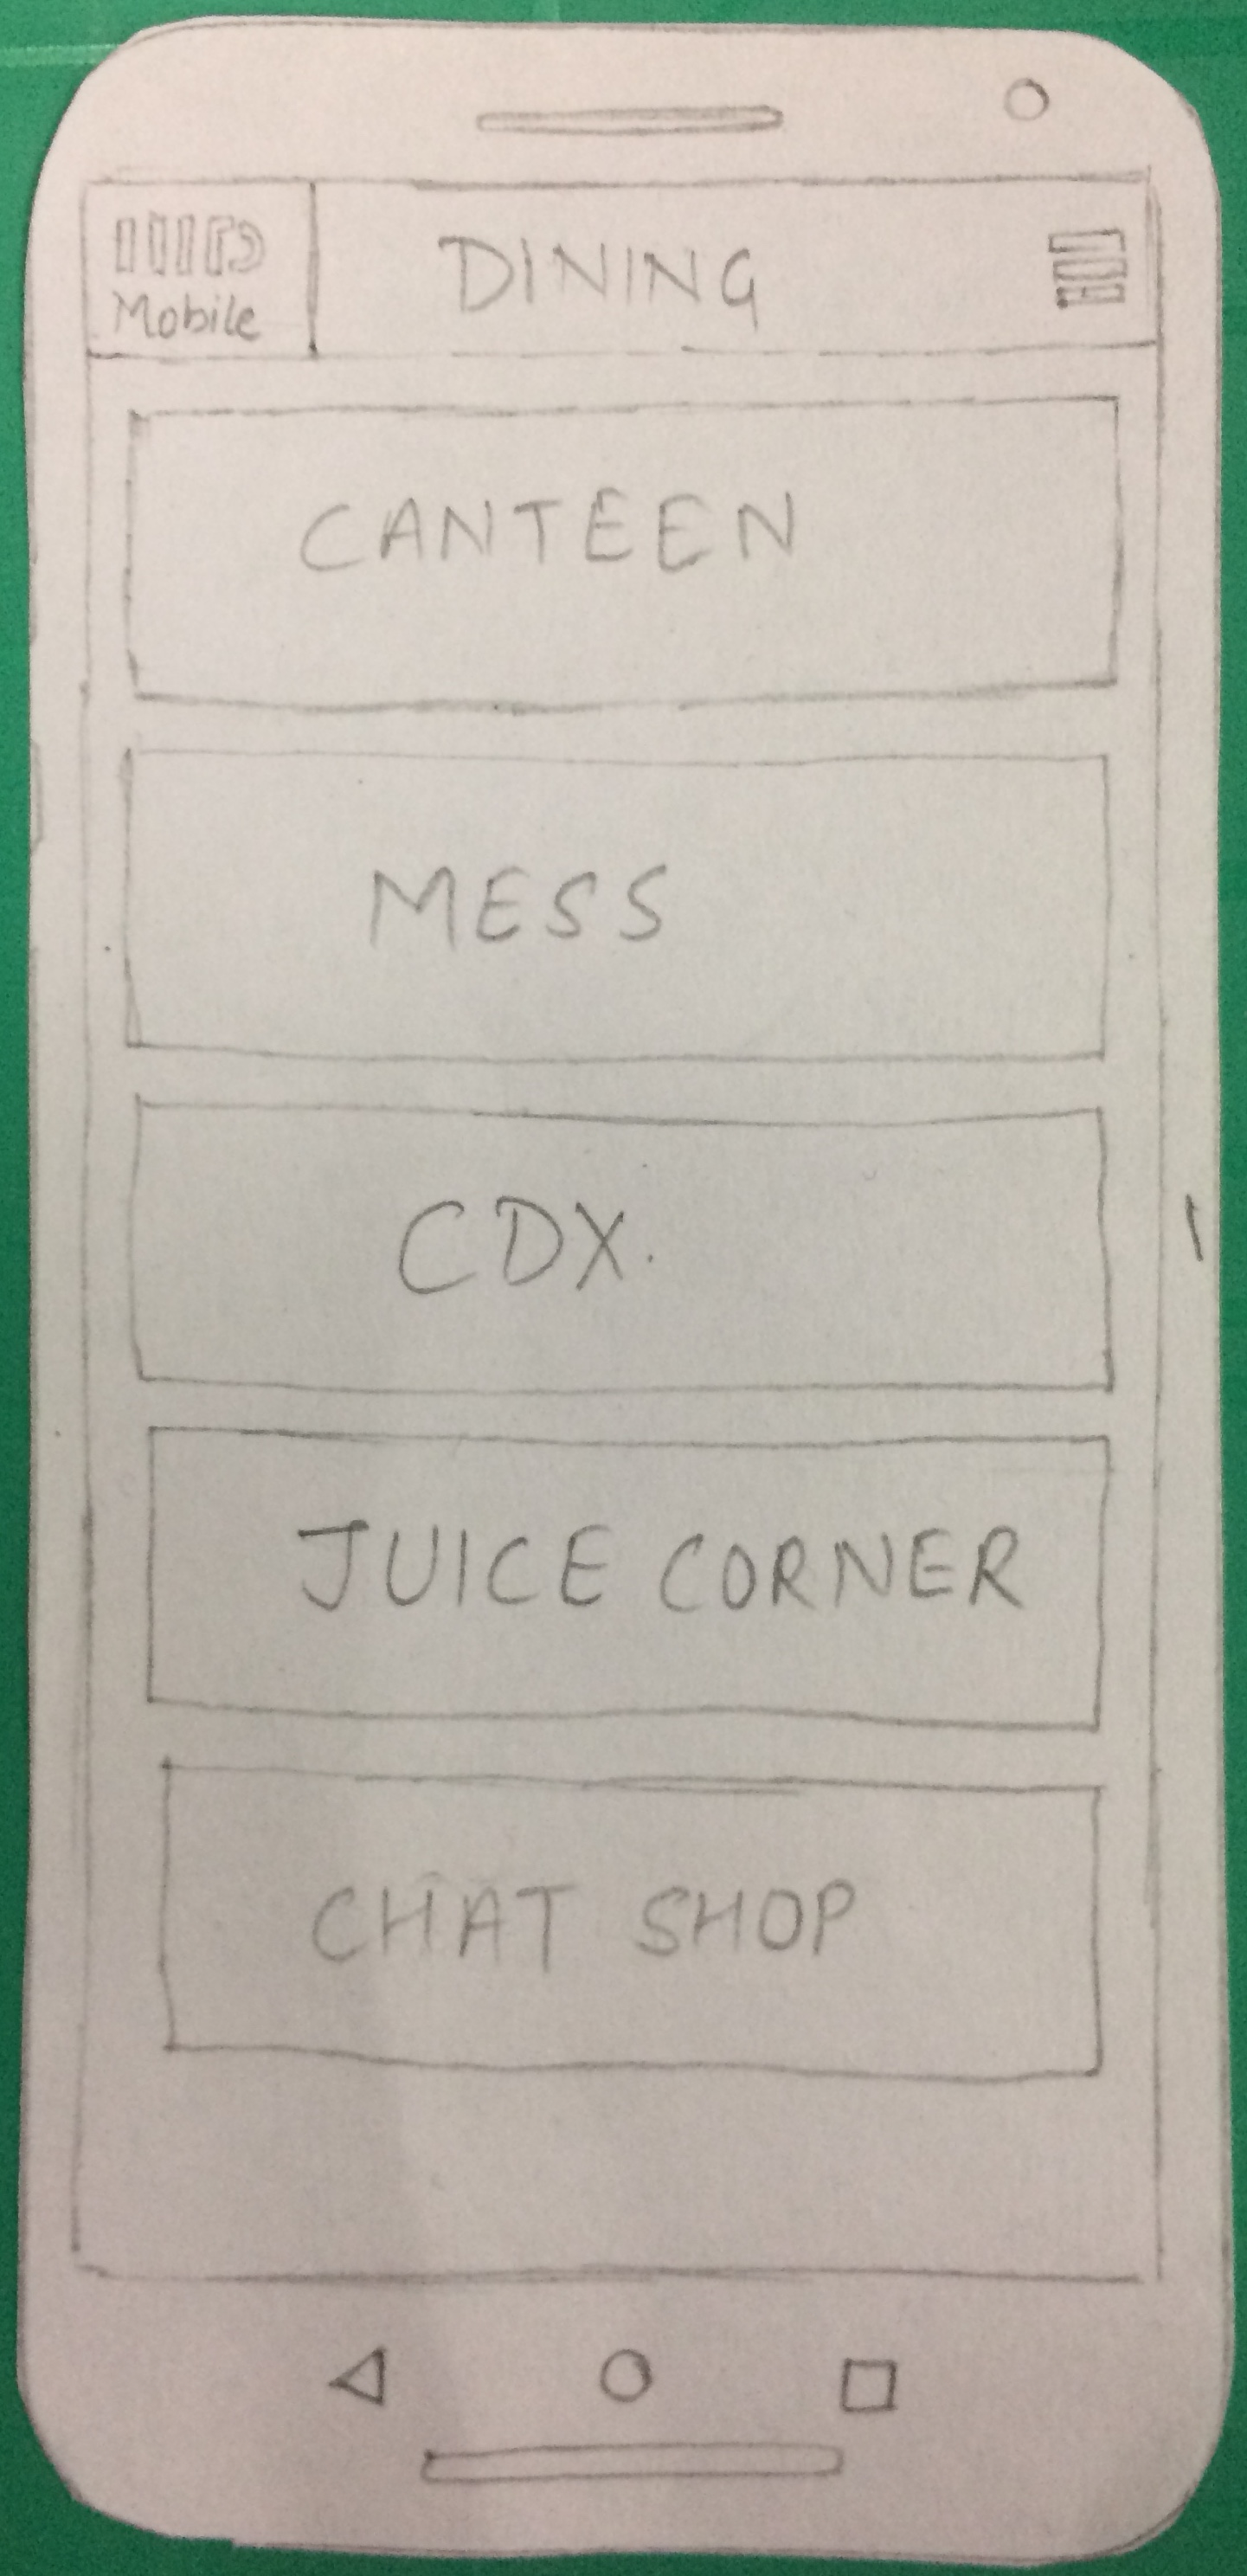 IIITD
Mobile
DINING
CANTEEN
MESS
CDX.
JUICE CORNER
CHAT SHOP